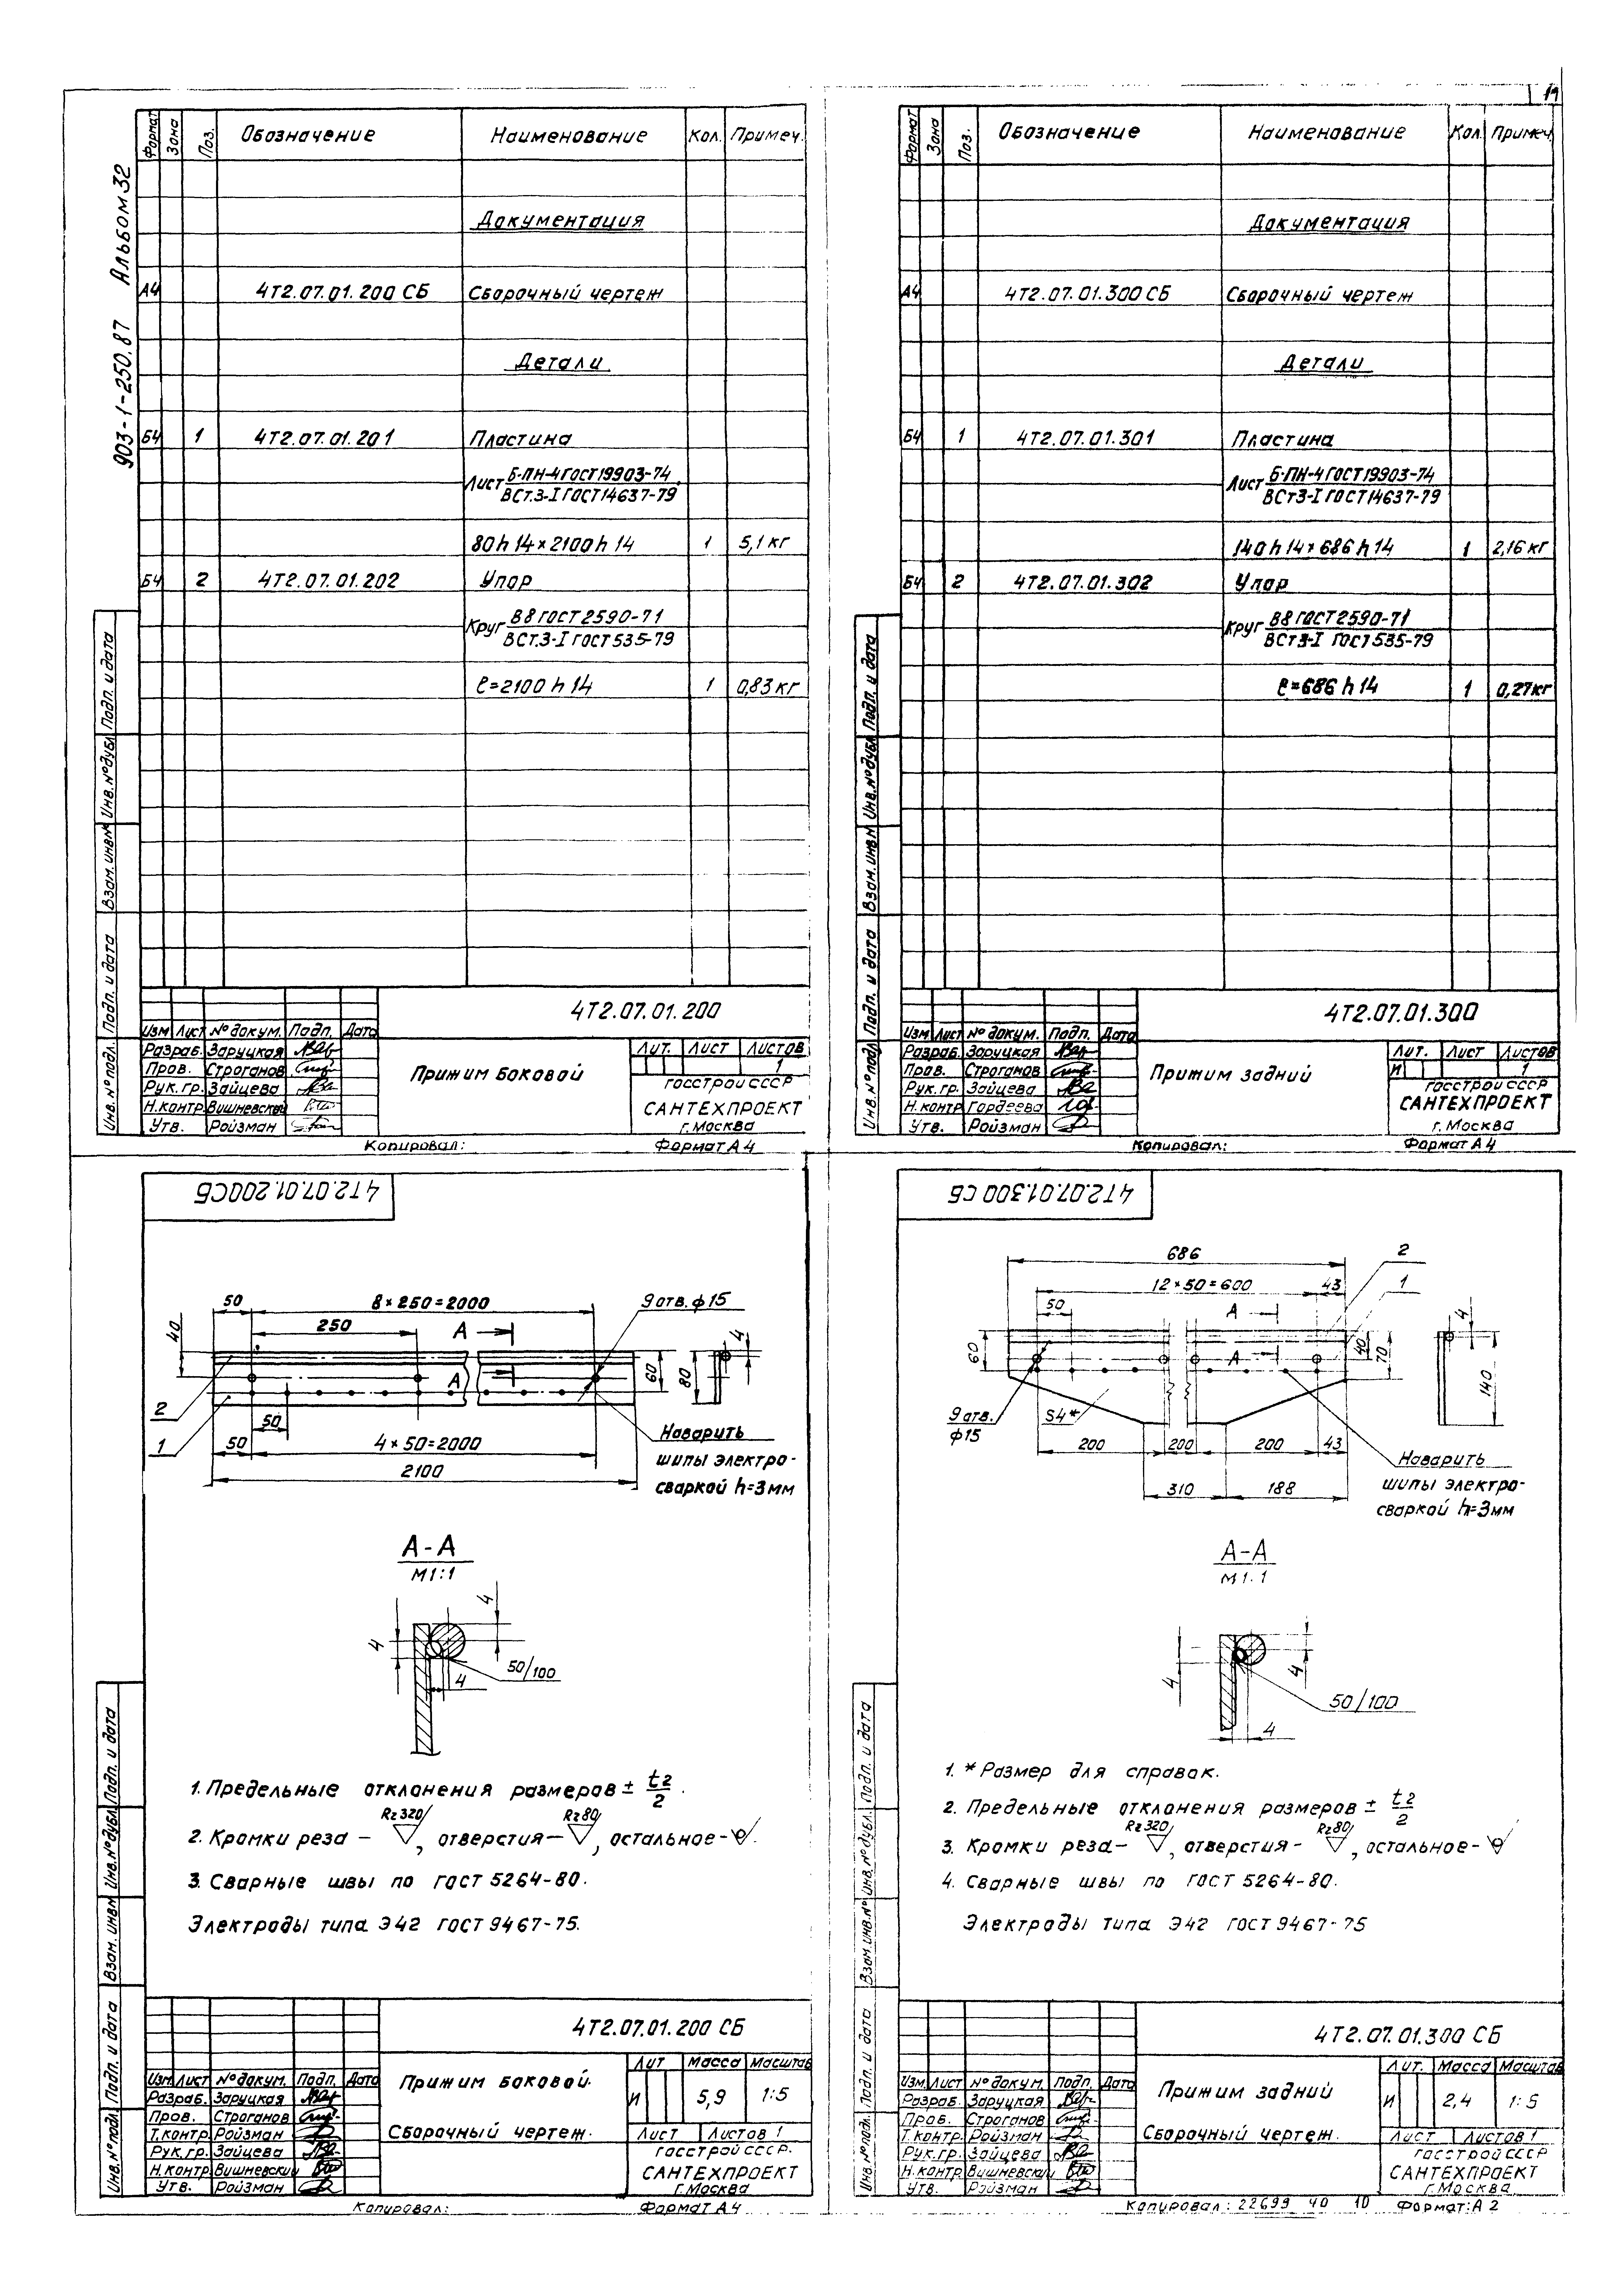 19
903-1-250.87 Альбом 32
Формат Зона Поз. Обозначение Наименование Кол. Примеч.
Документация
А4 4Т2.07.01.200 СБ Сборочный чертеж
Детали
Б4 1 4Т2.07.01.201 Пластина
Лист Б-ПН-4 ГОСТ 19903-74
ВСт.3-I ГОСТ 14637-79
80 h 14 × 2100 h 14 1 5,1 кг
Б4 2 4Т2.07.01.202 Упор
Круг В8 ГОСТ 2590-71
ВСт.3-I ГОСТ 535-79
ℓ=2100 h 14 1 0,83 кг
Инв. № подл. Подп. и дата Взам. инв № Инв. № дубл Подп. и дата
4Т2.07.01.200
Изм Лист № докум. Подп. Дата
Разраб. Заруцкая
Пров. Строганов
Рук. гр. Зайцева
Н.контр Вишневский
Утв. Ройзман
Прижим боковой
Лит. Лист Листов
1
Госстрой СССР
САНТЕХПРОЕКТ
г. Москва
Копировал: Формат А4
Формат Зона Поз. Обозначение Наименование Кол. Примеч
Документация
А4 4Т2.07.01.300 СБ Сборочный чертеж
Детали
Б4 1 4Т2.07.01.301 Пластина
Лист Б-ПН-4 ГОСТ 19903-74
ВСт3-I ГОСТ 14637-79
140 h 14 × 686 h 14 1 2,16 кг
Б4 2 4Т2.07.01.302 Упор
Круг В8 ГОСТ 2590-71
ВСт3-I ГОСТ 535-79
ℓ=686 h 14 1 0,27 кг
Инв. № подл Подп. и дата Взам. инв № Инв. № дубл Подп. и дата
4Т2.07.01.300
Изм Лист № докум. Подп. Дата
Разраб. Заруцкая
Пров. Строганов
Рук. гр. Зайцева
Н.контр Гордеева
Утв. Ройзман
Прижим задний
Лит. Лист Листов
И 1
Госстрой СССР
САНТЕХПРОЕКТ
г. Москва
Копировал: Формат А4
4Т2.07.01.200СБ
50 8 × 250 = 2000 9 отв. ф15
40 250 А 4
А 60 80
2
1
50
50 4 × 50 = 2000
2100
Наварить
шипы электро-
сваркой h=3мм
А-А
М1:1
4
4
50/100
4
1. Предельные отклонения размеров ± t2/2.
2. Кромки реза – Rz320, отверстия – Rz80, остальное - .
3. Сварные швы по ГОСТ 5264-80.
Электроды типа Э42 ГОСТ 9467-75.
Инв. № подл. Подп. и дата Взам. инв № Инв. № дубл. Подп. и дата
4Т2.07.01.200 СБ
Изм Лист № докум. Подп. Дата
Разраб. Заруцкая
Пров. Строганов
Т.контр. Ройзман
Рук. гр. Зайцева
Н.контр Вишневский
Утв. Ройзман
Прижим боковой.
Сборочный чертеж.
Лит Масса Масштаб
И 5,9 1:5
Лист Листов 1
Госстрой СССР.
САНТЕХПРОЕКТ
г. Москва
Копировал: Формат А4
4Т2.07.01.300 СБ
686 2
12 × 50 = 600 43 1
50 А 4
60 А 40 70 140
9 отв.
ф15
S4*
200 200 200 43
310 188
Наварить
шипы электро-
сваркой h=3мм
А-А
М1:1
4
4
50/100
4
1. * Размер для справок.
2. Предельные отклонения размеров ± t2/2
3. Кромки реза – Rz320, отверстия - Rz80, остальное -
4. Сварные швы по ГОСТ 5264-80.
Электроды типа Э42 ГОСТ 9467-75
Инв. № подл. Подп. и дата Взам. инв. № Инв. № дубл. Подп. и дата
4Т2.07.01.300 СБ
Изм Лист № докум. Подп. Дата
Разраб. Заруцкая
Пров. Строганов
Т.контр. Ройзман
Рук. гр. Зайцева
Н.контр. Вишневский
Утв. Ройзман
Прижим задний
Сборочный чертеж.
Лит. Масса Масштаб
И 2,4 1:5
Лист Листов 1
Госстрой СССР
САНТЕХПРОЕКТ
г. Москва
Копировал: 22699 40 10 Формат: А2